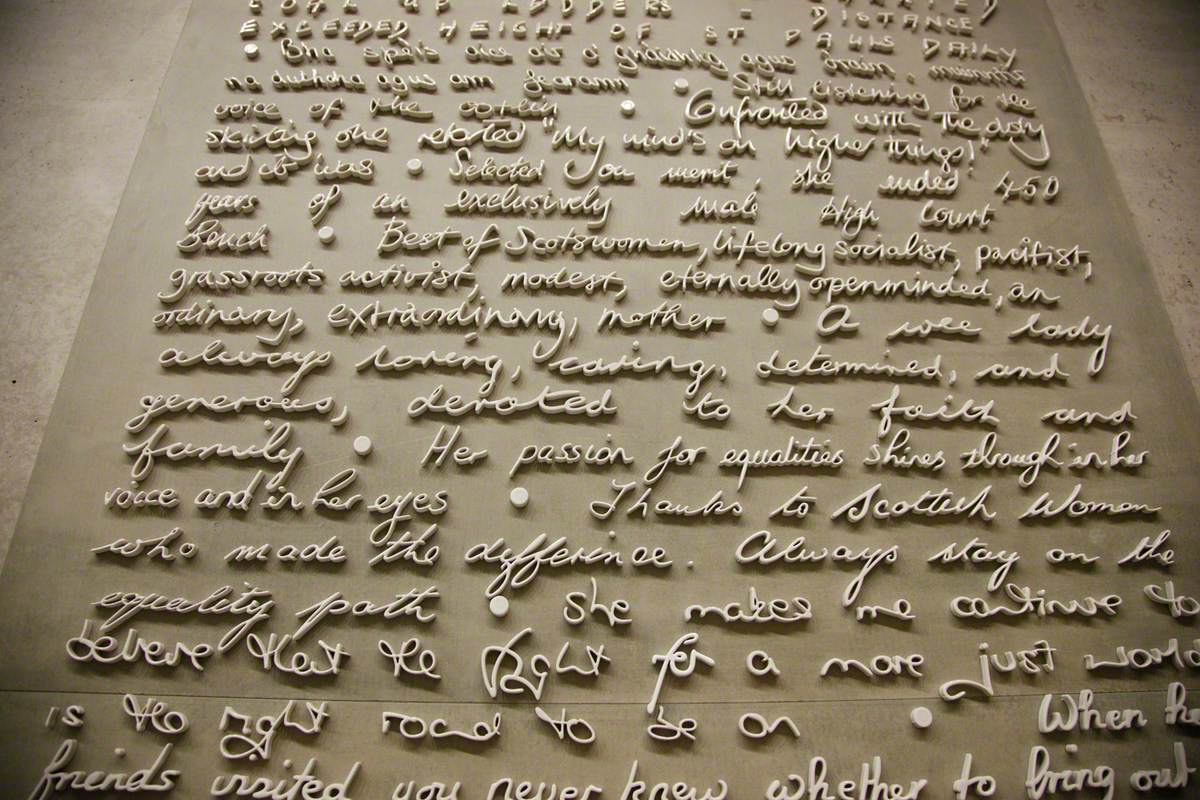 COAL UP LADDERS - CARRIED
EXCEEDED HEIGHT OF ST PAULS DAILY DISTANCE
• Bha speis aice air a' ghàidhlig agus òrain, muinntir
na dùthcha agus am fearann • Still listening for the
voice of the • Confronted with the dusty
skirting she retorted "My mind's on higher things!"
and it was • Selected You went, she ended 450
years of an exclusively male High Court
Bench • Best of Scotswomen, lifelong socialist, pacifist,
grassroots activist, modest, eternally openminded, an
ordinary, extraordinary, mother • A wee lady
always loving, caring, determined, and
generous, devoted to her faith and
family • Her passion for equalities shines through in her
voice and in her eyes • Thanks to Scottish Women
who made the difference. Always stay on the
equality path • She makes me continue to
believe that the fight for a more just world
is the right road to be on • When
friends visited you never knew whether to bring out